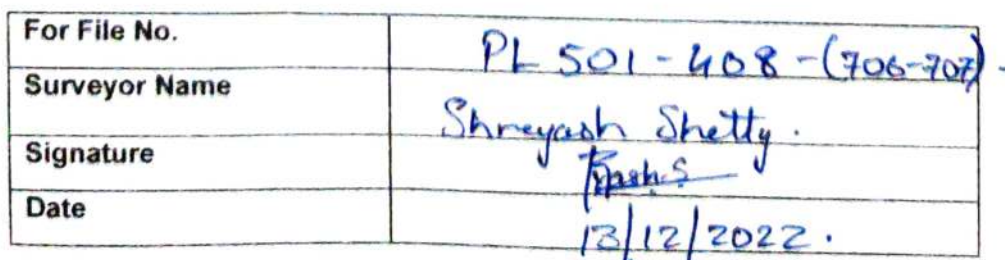 For File No. PL 501-408-(706-707)-
Surveyor Name Shreyash Shetty.
Signature
Date 13/12/2022.